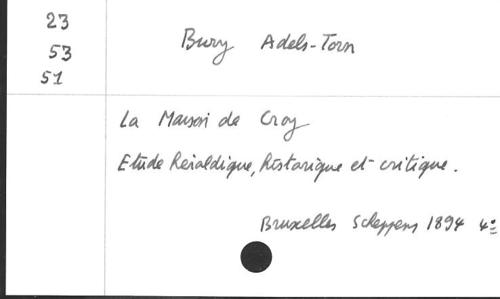 23
53
51
Bury Adels-Torn
La Maison de Croy
Etude héraldique, historique et critique.
Bruxelles Scheppens 1894 4º